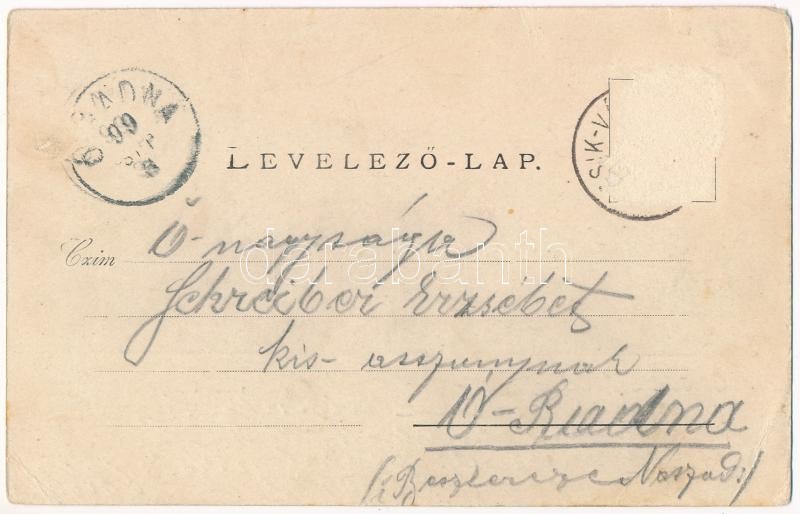 Ó RADNA
99
LEVELEZŐ-LAP.
SIK-V
Czim
Ő-nagysága
Schreiber Erzsébet
kis-asszonynak
Ó-Radna
/:Besztercze Naszód:/
darabanth